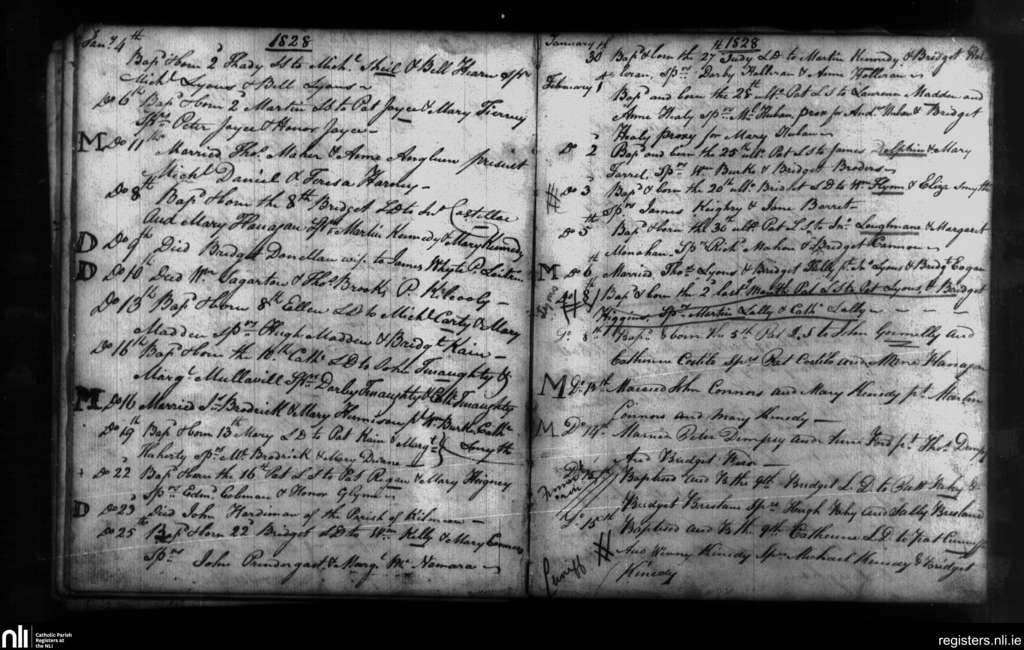 1828
Jany 4th Bapd & born 2d Thady LS to Michl Sheil & Bell Hearn Spr
Michl Lyons & Bell Lyons
Do 6th Bapd & born 2 Martin LS to Pat Joyce & Mary Tierney
Sprs Peter Joyce & Honor Joyce
M Do 11th Married Thos Maher & Anne Anglum present
Michl Daniel & Teresa Harney
Do 8th Bapd & born the 8th Bridget LD to Costelloe
And Mary Flanagan Sprs Martin Kennedy & Mary Kennedy
D Do 9th Died Bridget Donellan wife to James Whyte P.
D Do 10th Died Wm Fagarton & Thos Brooks P. Kilcooly
Do 13th Bapd & born 8th Ellen LD to Michl Carty & Mary
Madden Sprs Hugh Madden & Bridgt Kain
Do 16th Bapd & born the 10th Cathe LD to John Tunaughty &
Margt Mullavill Sprs Darby Tunaughty & Cath Tunaughty
M Do 16 Married Jn Brodrick & Mary Hennison pt Wm Burke Cathe
Smyth
Do 19th Bapd & born 13th Mary LD to Pat Kain & Margt
Flaherty Sprs Mr Brodrick & Mary Duane
Do 22 Bapd & born the 16th Pat LS to Pat Regan & Mary Heigney
Sprs Edmd Colman & Honor Glynn
D Do 23 Died John Hardiman of the Parish of
Do 25th Bapd & born 22d Bridget LD to Wm Kelly & Mary Connors
Sprs John Prendergast & Margt Mc Namara
1828
January
30 Bapd & born the 27 Judy LD to Martin Kennedy & Bridget Hol
loran, Sprs Darby Halloran & Anne Halloran
February 1 Bapd and born the 28th ulto Pat LS to Laurence Madden and
Anne Healy Sprs Ml Huban proxy for Andw Huban & Bridget
Healy proxy for Mary Huban
Do 2 Bapd and born the 25th ulto Pat LS to James Dolphin & Mary
Farrel, Sprs Wm Burke & Bridget Broders
Do 3 Bapd & born the 20th ulto Bridgt LD to Wm Flynn & Eliza Smyth
Sprs James Keighry & Jane Barrett
Do 5th Bapd & born the 30th ulto Pat LS to Jno Loughnane & Margaret
Monahan, Sprs Richd Mahon & Bridget Cannon
M Do 6th Married Thos Lyons & Bridget Kelly pt Jno Lyons & Bridgt Eagan
Do 8th Bapd & born the 2d last Month Pat LS to Pat Lyons, & Bridget
Higgins, Sprs Martin Lally & Cathe Lally
Lyons
Do 8th Bapd & born the 5th Pat LS to John Gormelly and
Catherine Costilo Sprs Pat Costilo and Mary Flanagan
M Do 12th Married John Connors and Mary Kenedy pt Martin
Connors and Mary Kenedy
M Do 14th Married Peter Dempsey and Anne pt Thos Dempsy
And Bridget
Do 15th Baptised and B the 9th Bridget L.D to Patt &
Bridget Breslane Sprs Hugh and Sally Breslane
Do 15th Baptised and B the 9th Catherine L.D to Pat Cuniff
And Winny Kenedy Sprs Michael Kenedy & Bridget
Kenedy
Cuniff
nli
Catholic Parish
Registers at
the NLI
registers.nli.ie